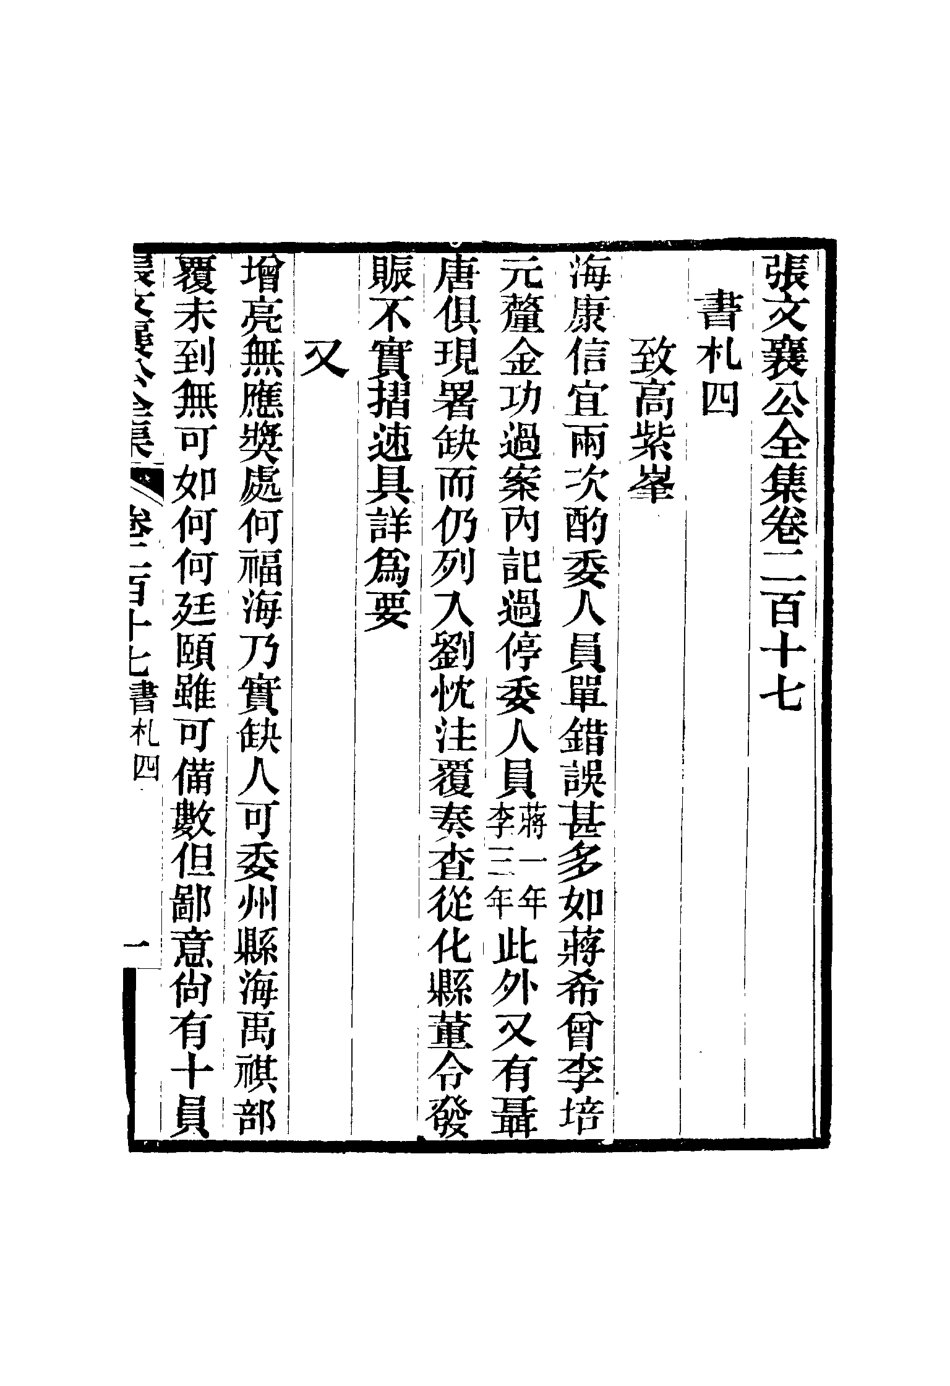 張文襄公全集卷二百十七
書札四
致高紫峯
海康信宜兩次酌委人員單錯誤甚多如蔣希曾李培
元釐金功過案內記過停委人員蔣一年李三年此外又有聶
唐俱現署缺而仍列入劉忱注覆奏查從化縣董令發
賑不實摺速具詳爲要
又
增亮無應獎處何福海乃實缺人可委州縣海禹祺部
覆未到無可如何何廷頤雖可備數但鄙意尙有十員
張文襄公全集 卷二百十七書札四 一